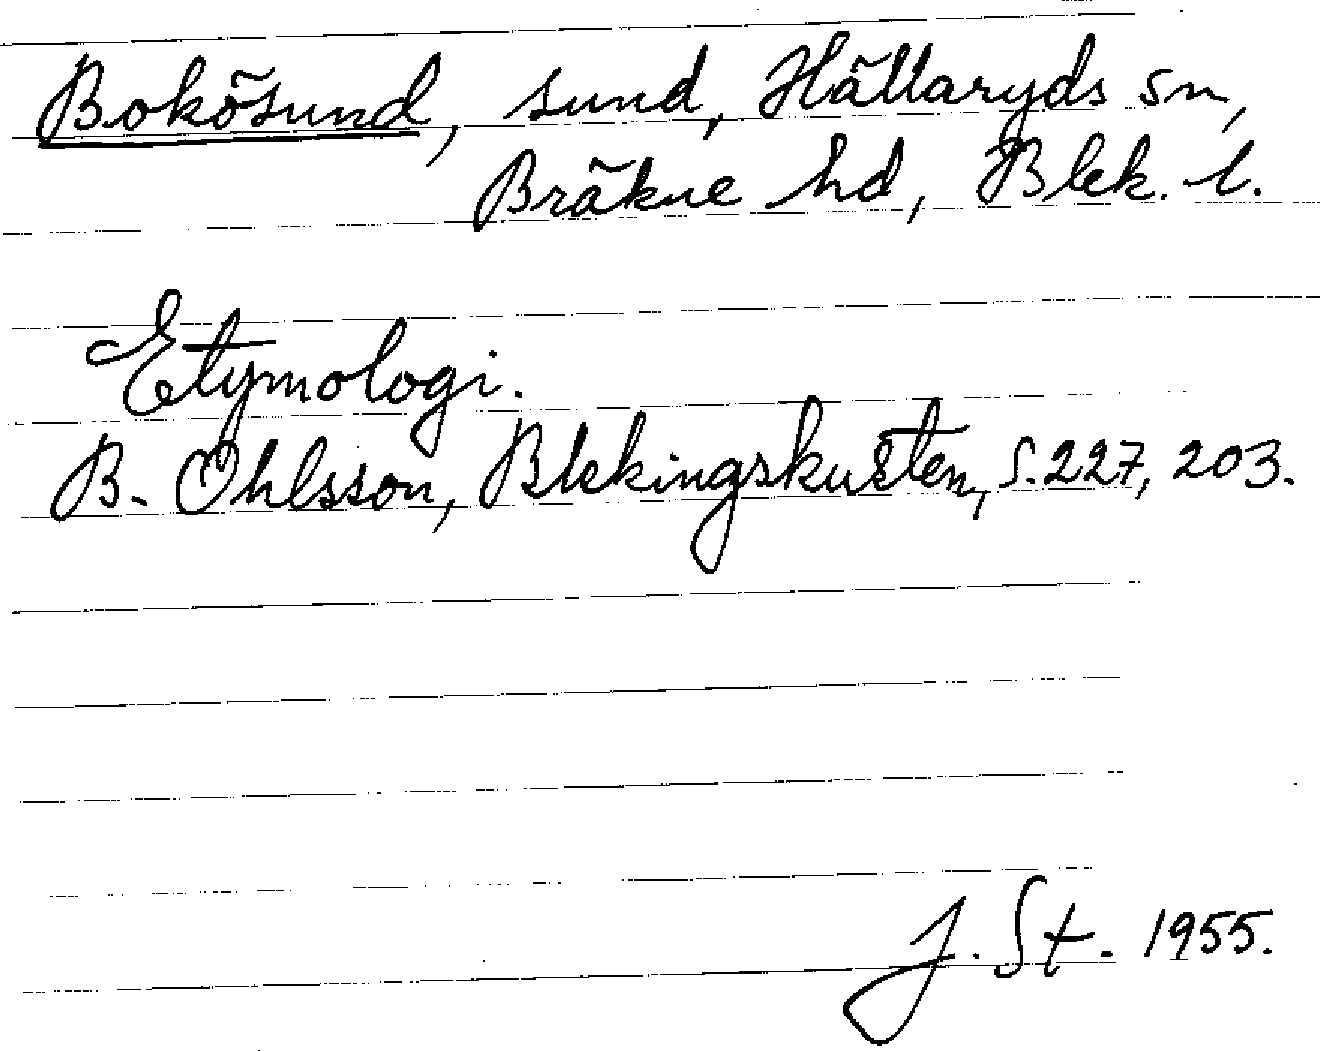 Bokösund, sund, Hällaryds sn,
Bräkne hd, Blek. l.
Etymologi.
B. Ohlsson, Blekingskusten, s. 227, 203.
J. St. 1955.